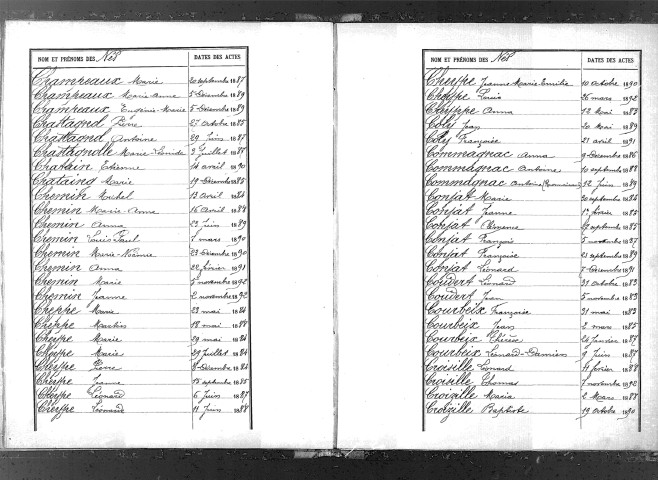 NOM ET PRÉNOMS DES Nés DATES DES ACTES
Champeaux Marie 20 septembre 1887
Champeaux Marie-Anne 5 Décembre 1889
Champeaux Eugénie-Marie 5 Décembre 1889
Chastagnol Pierre 27 octobre 1885
Chastagnol Antoine 29 Juin 1887
Chastagnolle Marie 2 Juillet 1888
Chatain Etienne 14 avril 1890
Chataing Marie 19 Décembre 1885
Chemin Michel 13 avril 1884
Chemin Marie-Anne 16 avril 1888
Chemin Anna 23 Juin 1889
Chemin Louis Paul 7 mars 1890
Chemin Marie-Noémie 23 Décembre 1890
Chemin Anna 22 février 1891
Chemin Marie 5 novembre 1892
Chemin Jeanne 2 novembre 1892
Cheppe Marie 23 mai 1884
Cheppe Martin 18 mai 1888
Cheype Marie 29 mai 1884
Cheype Marie 29 Juillet 1884
Cheype Pierre 8 Décembre 1884
Cheype Jeanne 15 septembre 1885
Cheype Léonard 6 Juin 1887
Cheyppe Léonard 11 Juin 1888
NOM ET PRÉNOMS DES Nés DATES DES ACTES
Cheyppe Jeanne Marie Emilie 10 octobre 1890
Cheyppe Louis 26 mars 1892
Cheyppe Anna 12 Mai 1883
Coly Jean 20 Mai 1889
Coly Françoise 21 avril 1891
Commagnac Anna 9 Décembre 1886
Commagnac Antoine 10 septembre 1888
Commagnac Antoine 12 Juin 1889
Confat Marie 30 septembre 1884
Confat Jeanne 1er février 1885
Confat Clémence 27 septembre 1885
Confat François 5 novembre 1887
Confat Françoise 23 septembre 1889
Confat Léonard 7 Décembre 1891
Coudert Léonard 31 octobre 1883
Coudert Jean 5 novembre 1883
Courbeix Françoise 31 mai 1883
Courbeix Jean 2 mars 1885
Courbeix Thérèse 24 Janvier 1887
Courbeix Léonard-Damien 9 Juin 1887
Croisille Léonard 11 février 1888
Croisille Thomas 7 novembre 1892
Croizille Maria 2 Mars 1888
Croizille Baptiste 19 octobre 1890